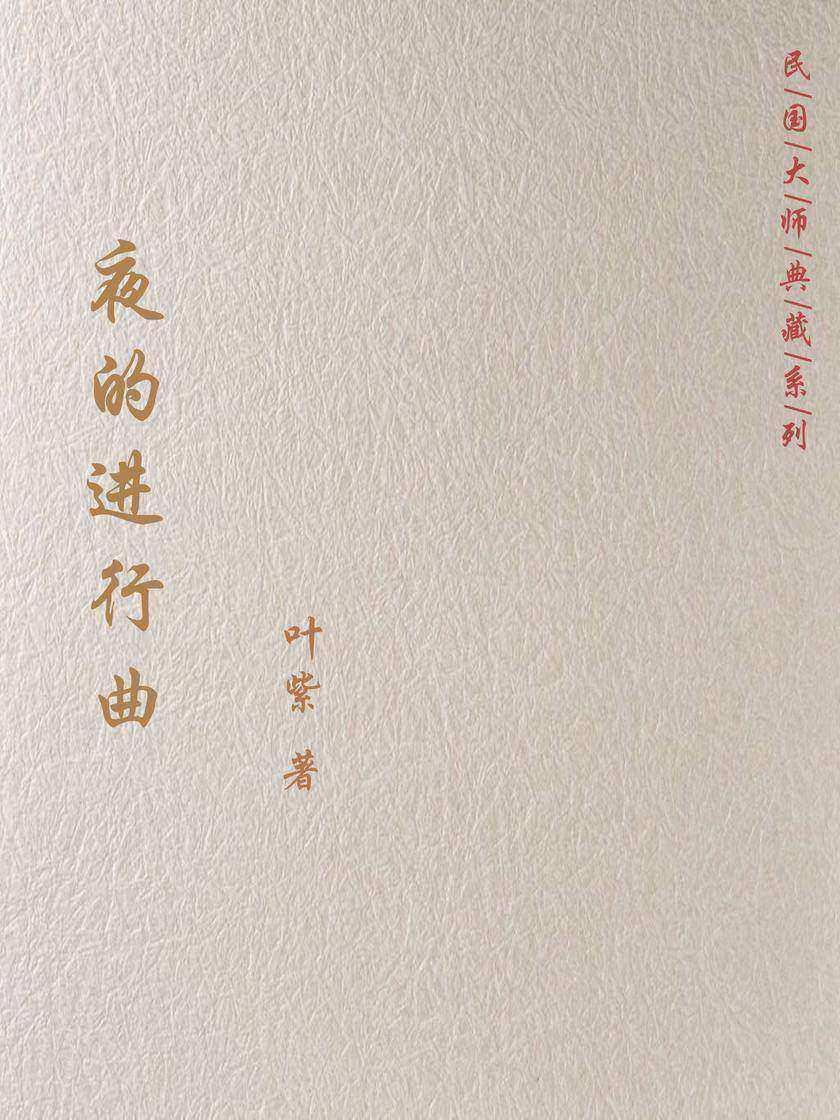 民/国/大/师/典/藏/系/列
夜的进行曲
叶紫 著